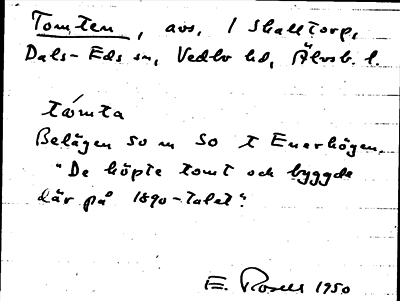 Tomten, avs. / Skalltorp,
Dals-Eds sn, Vedbo hd, Älvsb. l.
tåmta
Belägen som SO t Enerhögen.
"De köpte tomt och byggde
där på 1890-talet".
E. 1950